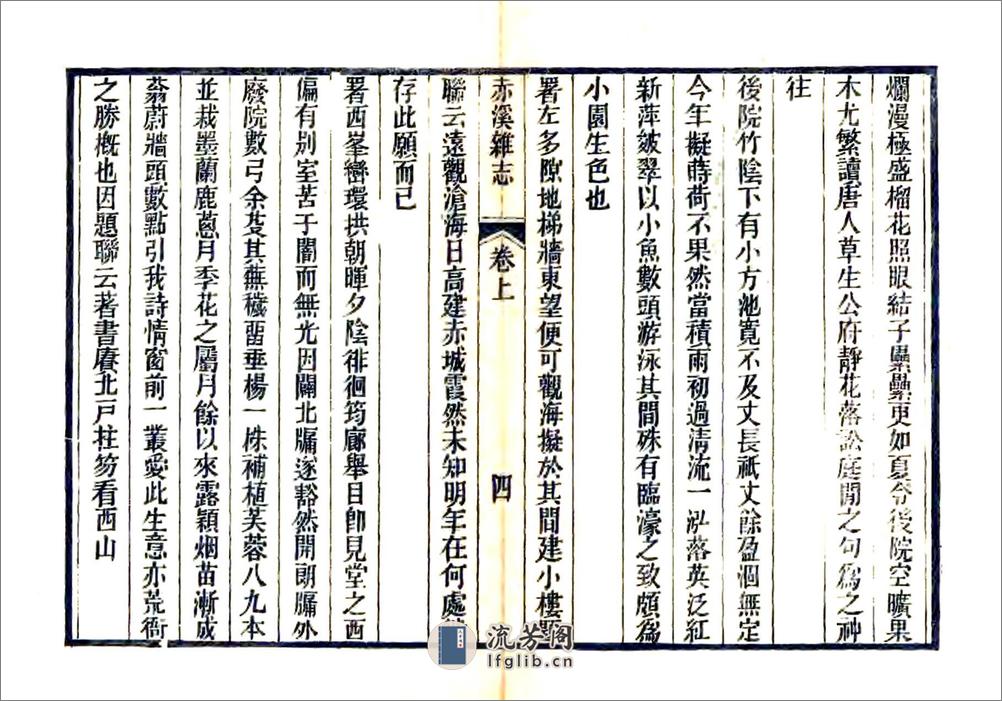 爛漫極盛榴花照眼結子纍纍更如夏令後院空曠果
木尤繁讀唐人草生公府靜花落訟庭閒之句爲之神
往
後院竹陰下有小方池寬不及丈長祇丈餘盈涸無定
今年擬蒔荷不果然當積雨初過清流一泓落英泛紅
新萍皴翠以小魚數頭游泳其間殊有臨濠之致頗爲
小園生色也
署左多隙地梯牆東望便可觀海擬於其間建小樓題
赤溪雜志
卷上
四
聯云遠觀滄海日高建赤城霞然未知明年在何處
存此願而已
署西峯巒環拱朝暉夕陰徘徊筠廊舉目卽見堂之西
偏有别室苦于闇而無光因闢北牖遂豁然開朗牖外
廢院數弓余芟其蕪穢畱垂楊一株補植芙蓉八九本
並栽墨蘭鹿蔥月季花之屬月餘以來露穎烟苗漸成
蓊蔚牆頭數點引我詩情窗前一叢愛此生意亦荒衙
之勝概也因題聯云著書賡北戸拄笏看西山
流芳閣
lfglib.cn